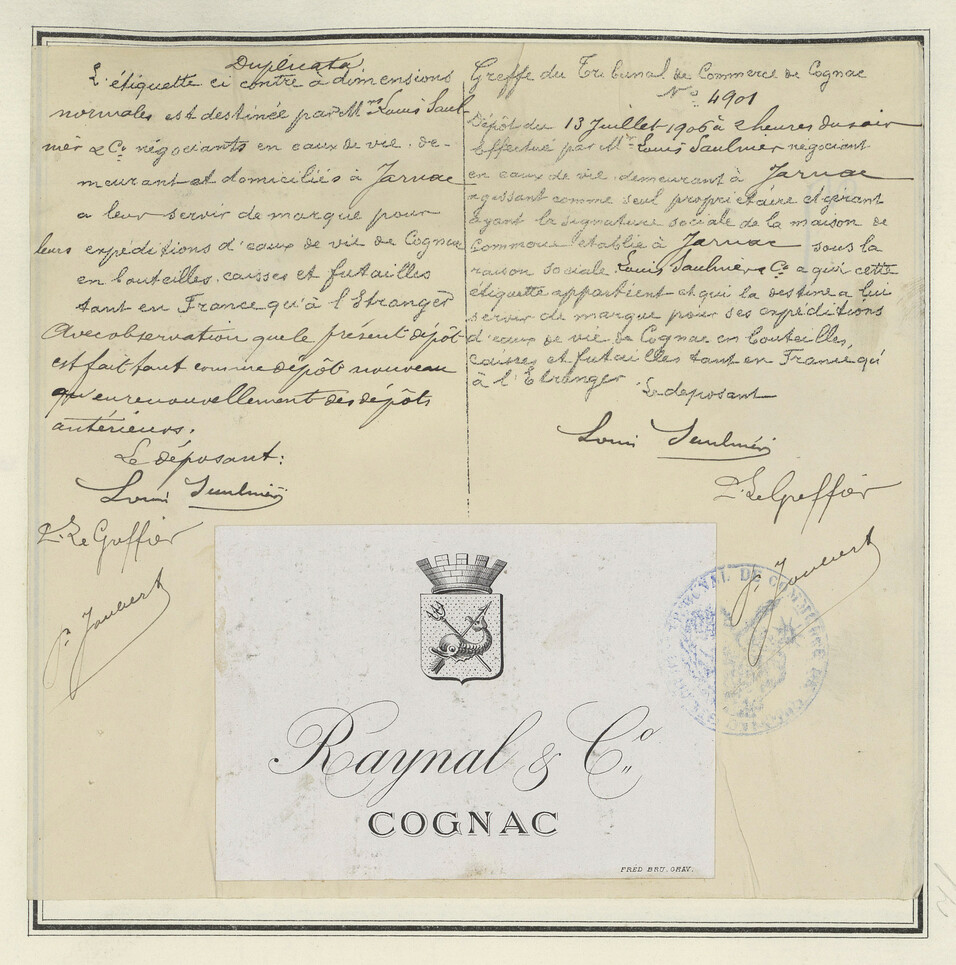 Duplicata
L'étiquette ci contre à dimensions
normales est destinée par Mr Louis Saul-
nier & Co négociants en eaux de vie. de-
meurant et domiciliés à Jarnac
a leur servir de marque pour
leurs expéditions d'eaux de vie de Cognac
en bouteilles, caisses et futailles
tant en France qu'à l'Etranger
Avec observation que le présent dépôt
est fait tant comme dépôt nouveau
qu'en renouvellement des dépôts
antérieurs.
Le déposant:
Louis Saulnier
P. Le Greffier
P. Joubert
Greffe du Tribunal de Commerce de Cognac
No 4901
Dépôt du 13 Juillet 1906 à 2 heures du soir
Effectué par Mr Louis Saulnier négociant
en eaux de vie demeurant à Jarnac
agissant comme seul propriétaire et gérant
ayant la signature sociale de la maison de
Commerce établie à Jarnac sous la
raison sociale Louis Saulnier & Co a qui cette
étiquette appartient et qui la destine a lui
servir de marque pour ses expéditions
d'eaux de vie de Cognac en bouteilles,
caisses et futailles tant en France qu'
à l'Etranger.
Le déposant
Louis Saulnier
P. Le Greffier
P. Joubert
TRIBUNAL DE COMMERCE DE
Raynal & Co
COGNAC
FRED BRU. GRAV.